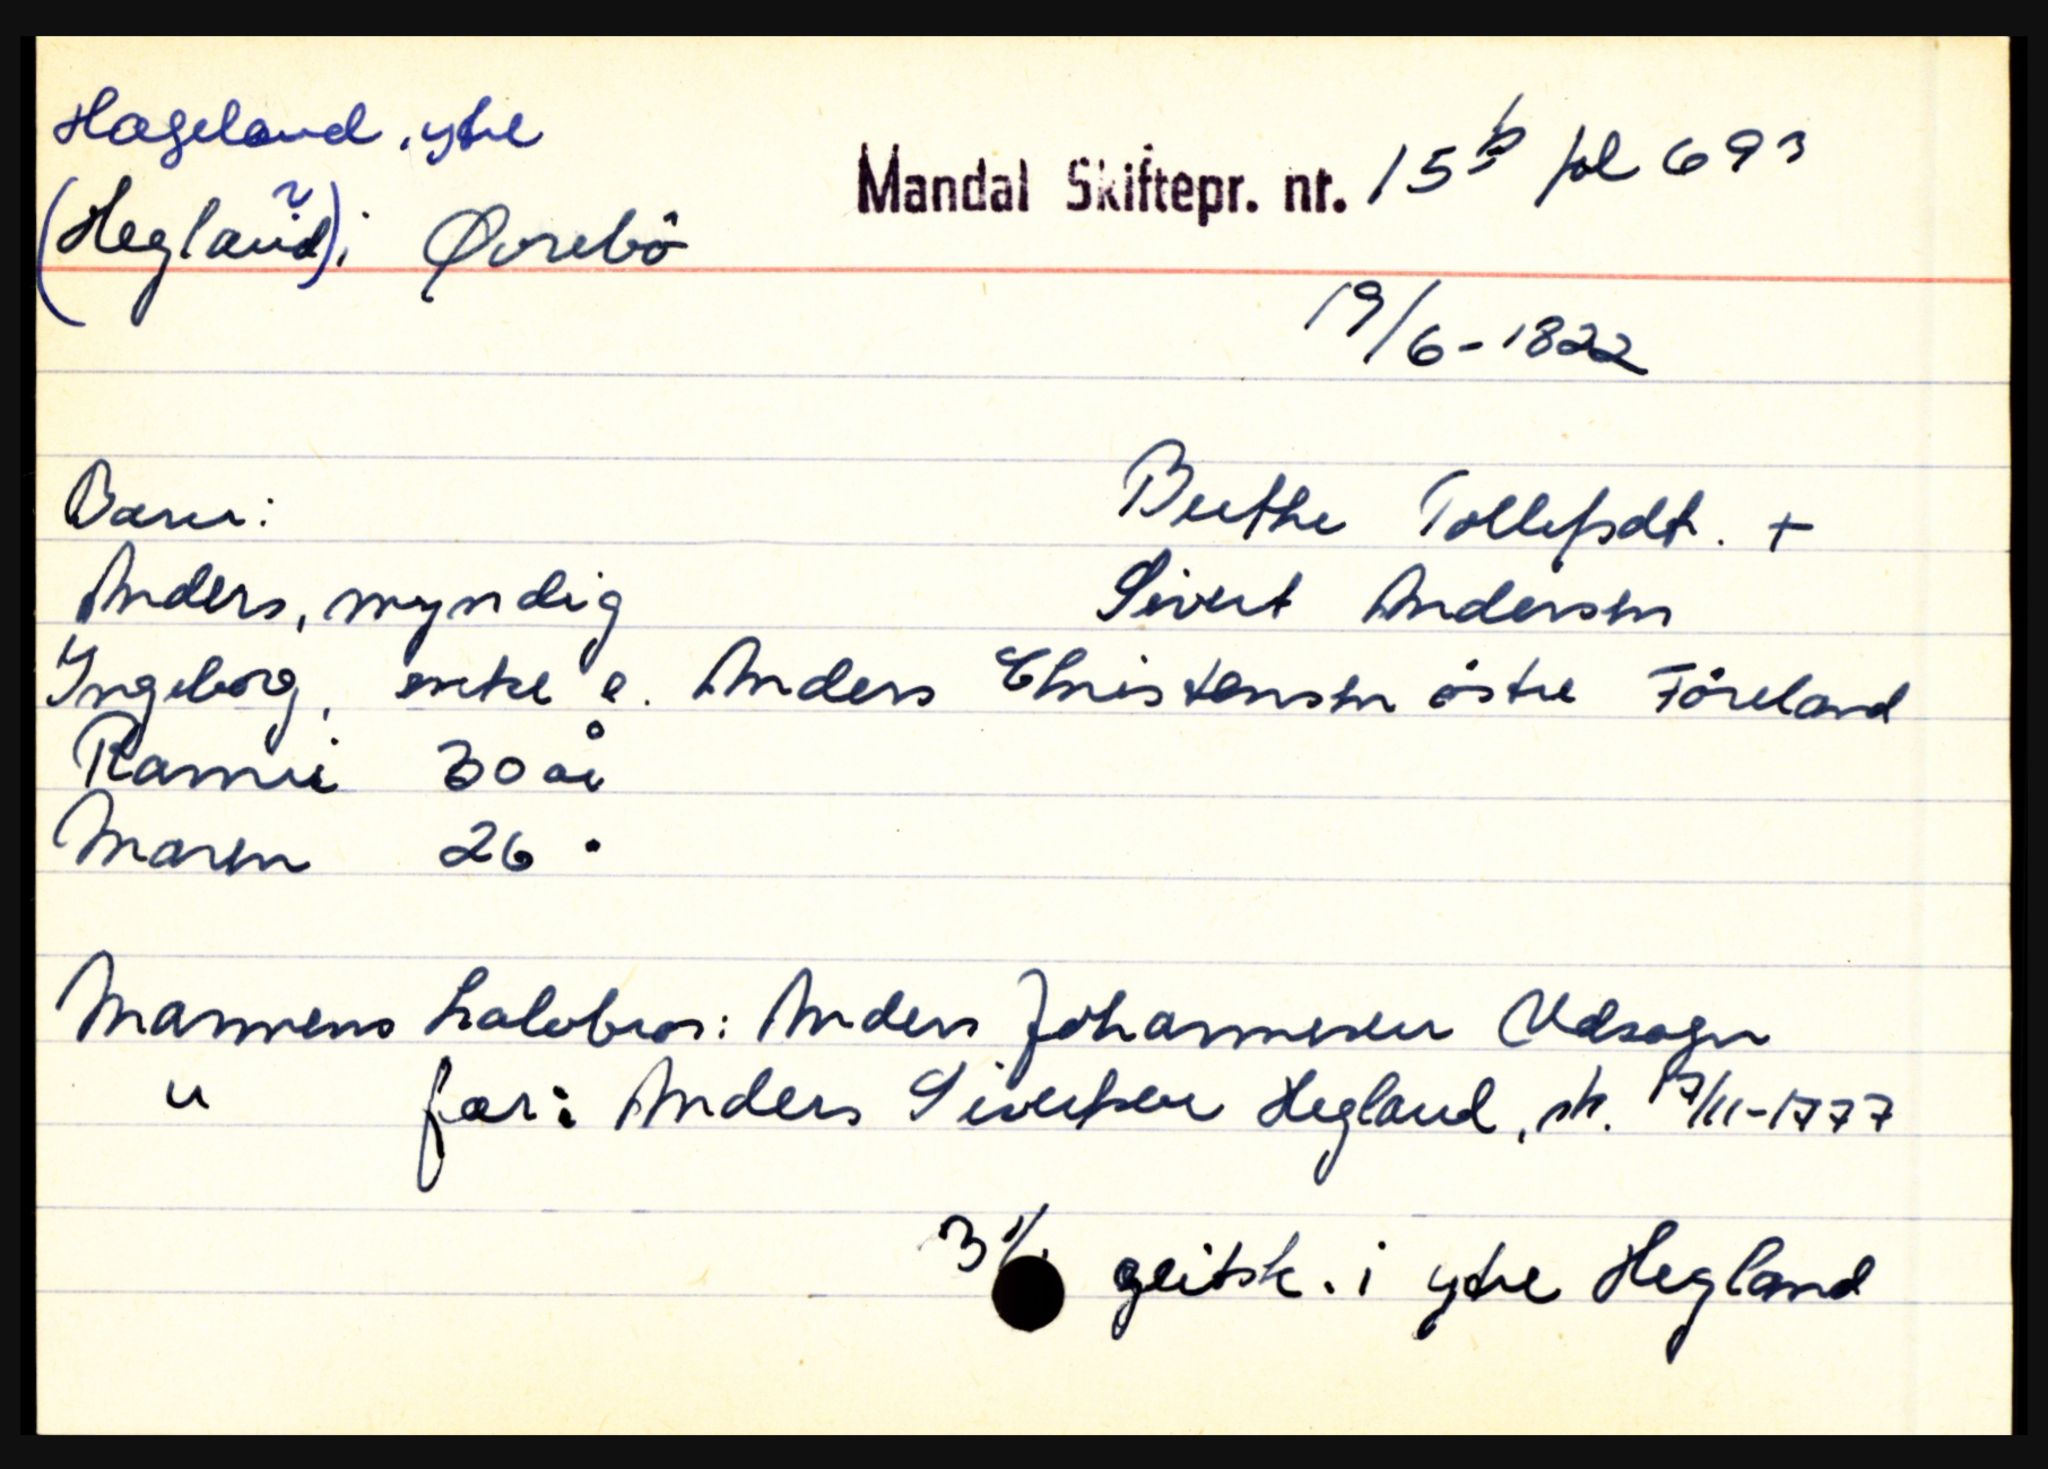 Hageland, ytre
(Hegland) i Øvrebö
Mandal Skiftepr. nr. 15b fol 693
19/6-1822
Barn:
Berthe Tollefsdt. +
Anders, myndig
Sivert Andersen
Ingeborg, enke e. Anders Christensen östre Föreland
Rannei 30 år
Maren 26 "
Mannens halvbror: Anders Johannesen Udsogn
" far: Anders Sivertsen Hegland, sk. /11-1777
geitsk. i ytre Hegland